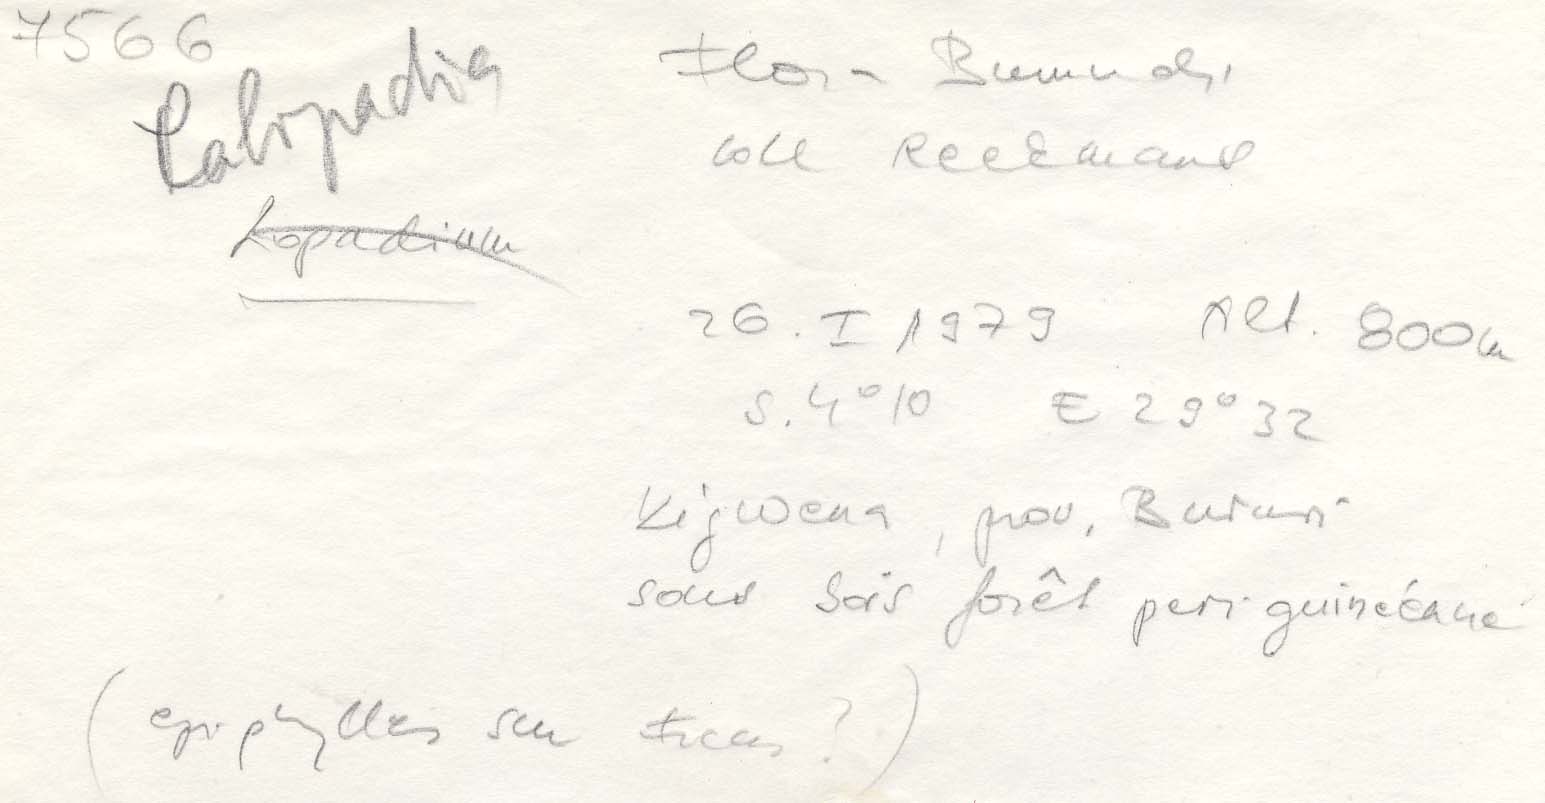 7566
Calopadia
Lopadium
Flora Burundi
coll Reekmans
26. I 1979 Alt. 800m
S. 4°10 E 29°32
Kigwena, prov. Bururi
sous bois forêt peri guinéenne
(epiphylles sur Ficus ?)